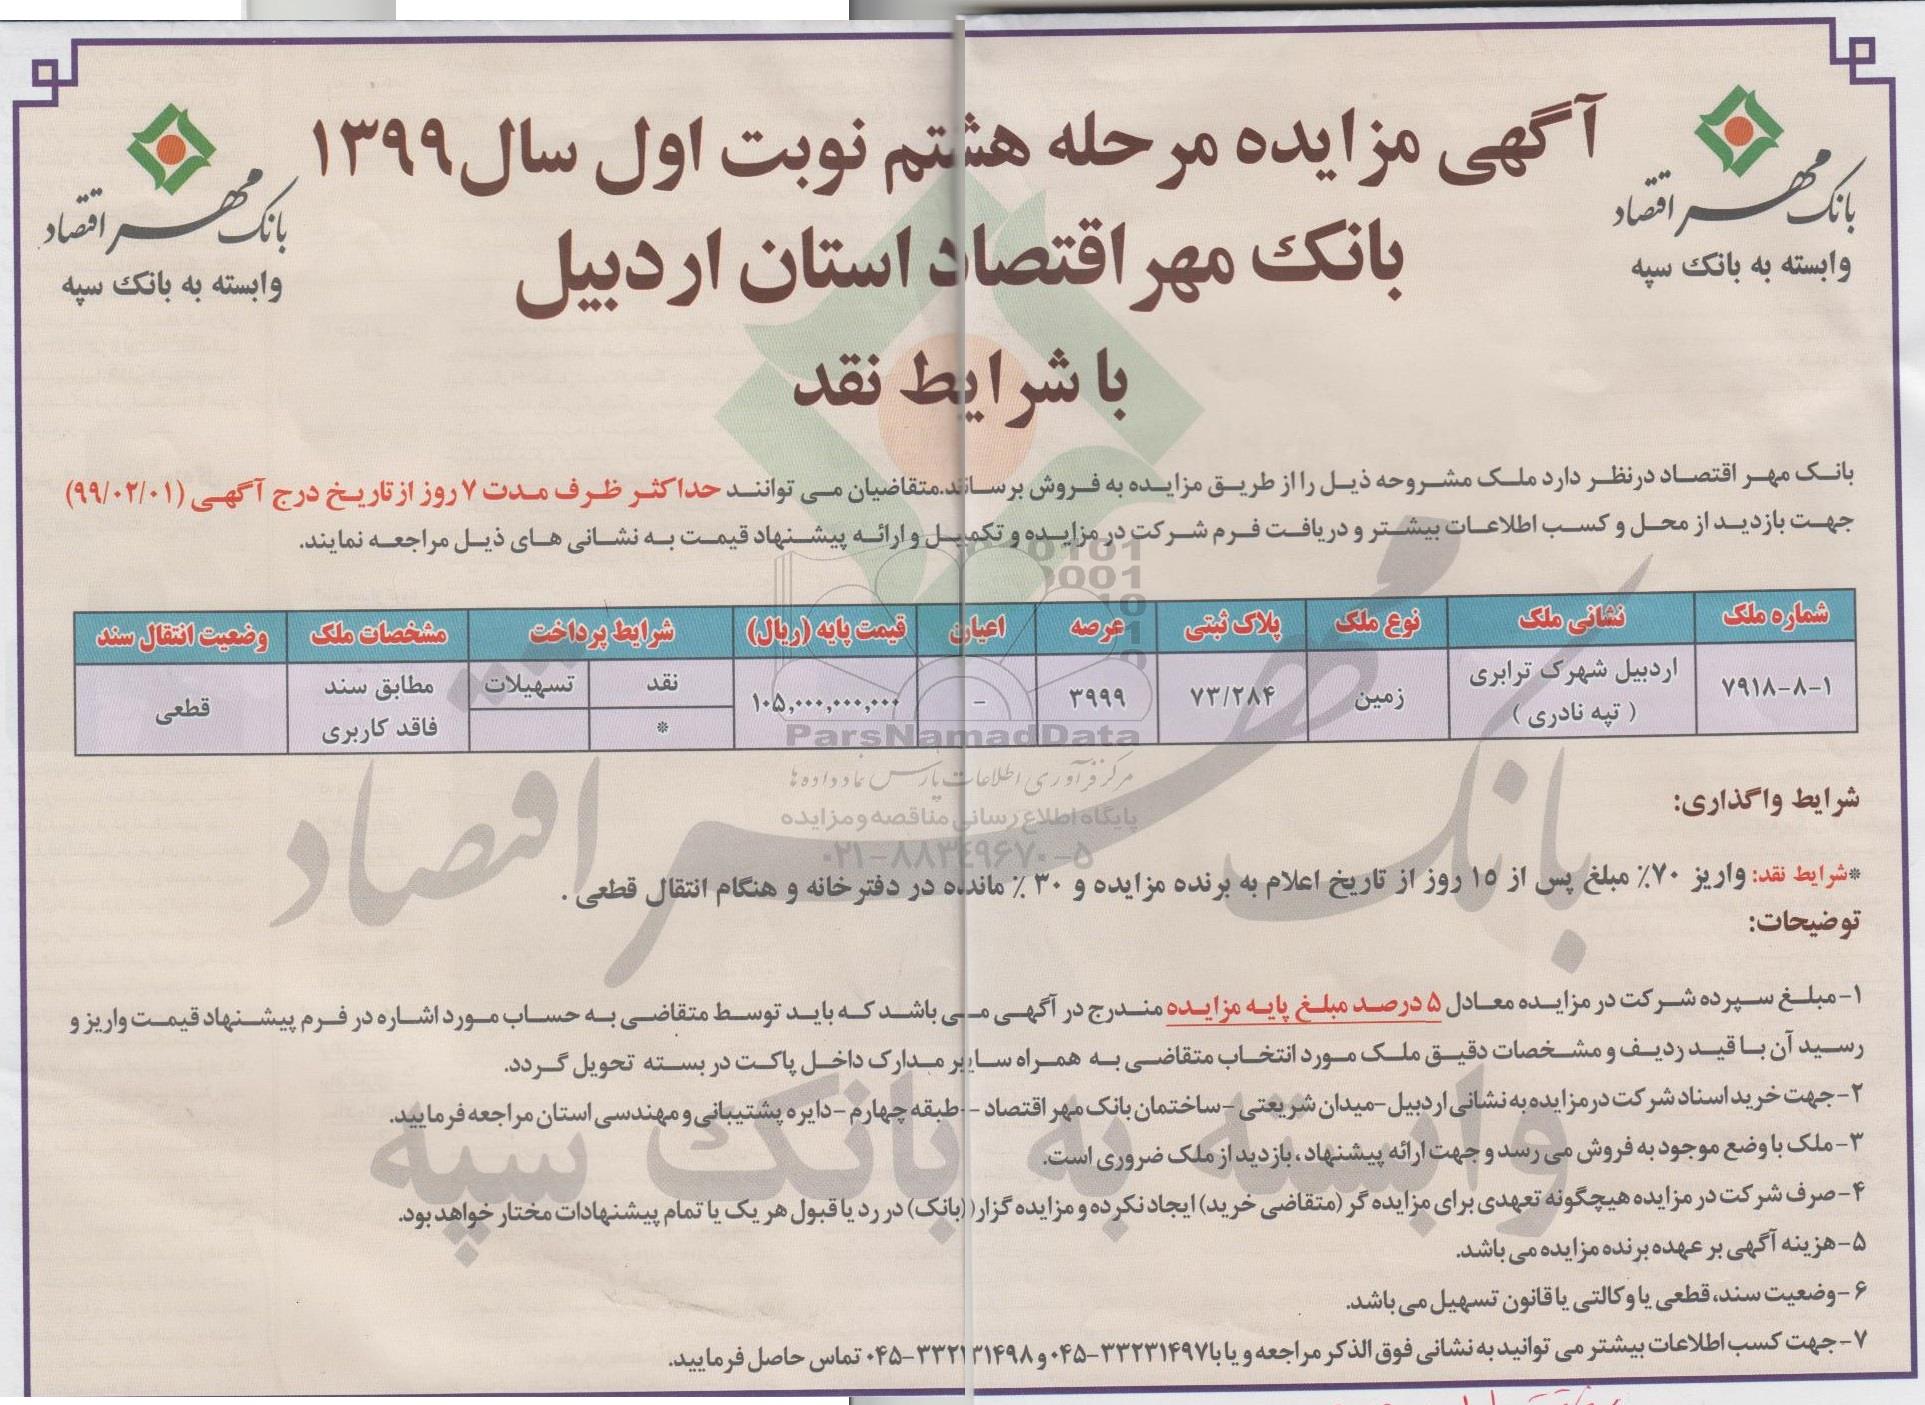 آگهی مزایده مرحله هشتم نوبت اول سال ۱۳۹۹
بانک مهر اقتصاد استان اردبیل
با شرایط نقد
بانک مهر اقتصاد
وابسته به بانک سپه
بانک مهر اقتصاد
وابسته به بانک سپه
بانک مهر اقتصاد درنظر دارد ملک مشروحه ذیل را از طریق مزایده به فروش برساند.متقاضیان می توانند حداکثر ظرف مدت ۷ روز از تاریخ درج آگهی (۹۹/۰۲/۰۱)
جهت بازدید از محل و کسب اطلاعات بیشتر و دریافت فرم شرکت در مزایده و تکمیل و ارائه پیشنهاد قیمت به نشانی های ذیل مراجعه نمایند.
شماره ملک نشانی ملک نوع ملک پلاک ثبتی عرصه اعیان قیمت پایه (ریال) شرایط پرداخت مشخصات ملک وضعیت انتقال سند
۷۹۱۸-۸-۱ اردبیل شهرک ترابری ( تپه نادری ) زمین ۷۳/۲۸۴ ۳۹۹۹ - ۱۰۵,۰۰۰,۰۰۰,۰۰۰ نقد تسهیلات مطابق سند فاقد کاربری قطعی
*
ParsNamadData
مرکز فرآوری اطلاعات پارس نماد داده ها
پایگاه اطلاع رسانی مناقصه و مزایده
۰۲۱-۸۸۳۴۹۶۷۰-۵
شرایط واگذاری:
*شرایط نقد: واریز ۷۰٪ مبلغ پس از ۱۵ روز از تاریخ اعلام به برنده مزایده و ۳۰ ٪ مانده در دفترخانه و هنگام انتقال قطعی .
توضیحات:
۱- مبلغ سپرده شرکت در مزایده معادل ۵ درصد مبلغ پایه مزایده مندرج در آگهی می باشد که باید توسط متقاضی به حساب مورد اشاره در فرم پیشنهاد قیمت واریز و
رسید آن با قید ردیف و مشخصات دقیق ملک مورد انتخاب متقاضی به همراه سایر مدارک داخل پاکت در بسته تحویل گردد.
۲- جهت خرید اسناد شرکت درمزایده به نشانی اردبیل-میدان شریعتی -ساختمان بانک مهر اقتصاد --طبقه چهارم -دایره پشتیبانی و مهندسی استان مراجعه فرمایید.
۳- ملک با وضع موجود به فروش می رسد و جهت ارائه پیشنهاد ، بازدید از ملک ضروری است.
۴- صرف شرکت در مزایده هیچگونه تعهدی برای مزایده گر (متقاضی خرید) ایجاد نکرده و مزایده گزار( (بانک) در رد یا قبول هر یک یا تمام پیشنهادات مختار خواهد بود.
۵-هزینه آگهی بر عهده برنده مزایده می باشد.
۶ -وضعیت سند، قطعی یا وکالتی یا قانون تسهیل می باشد.
۷- جهت کسب اطلاعات بیشتر می توانید به نشانی فوق الذکر مراجعه و یا با ۳۳۲۳۱۴۹۷-۰۴۵ و ۳۳۲۳۱۴۹۸-۰۴۵ تماس حاصل فرمایید.